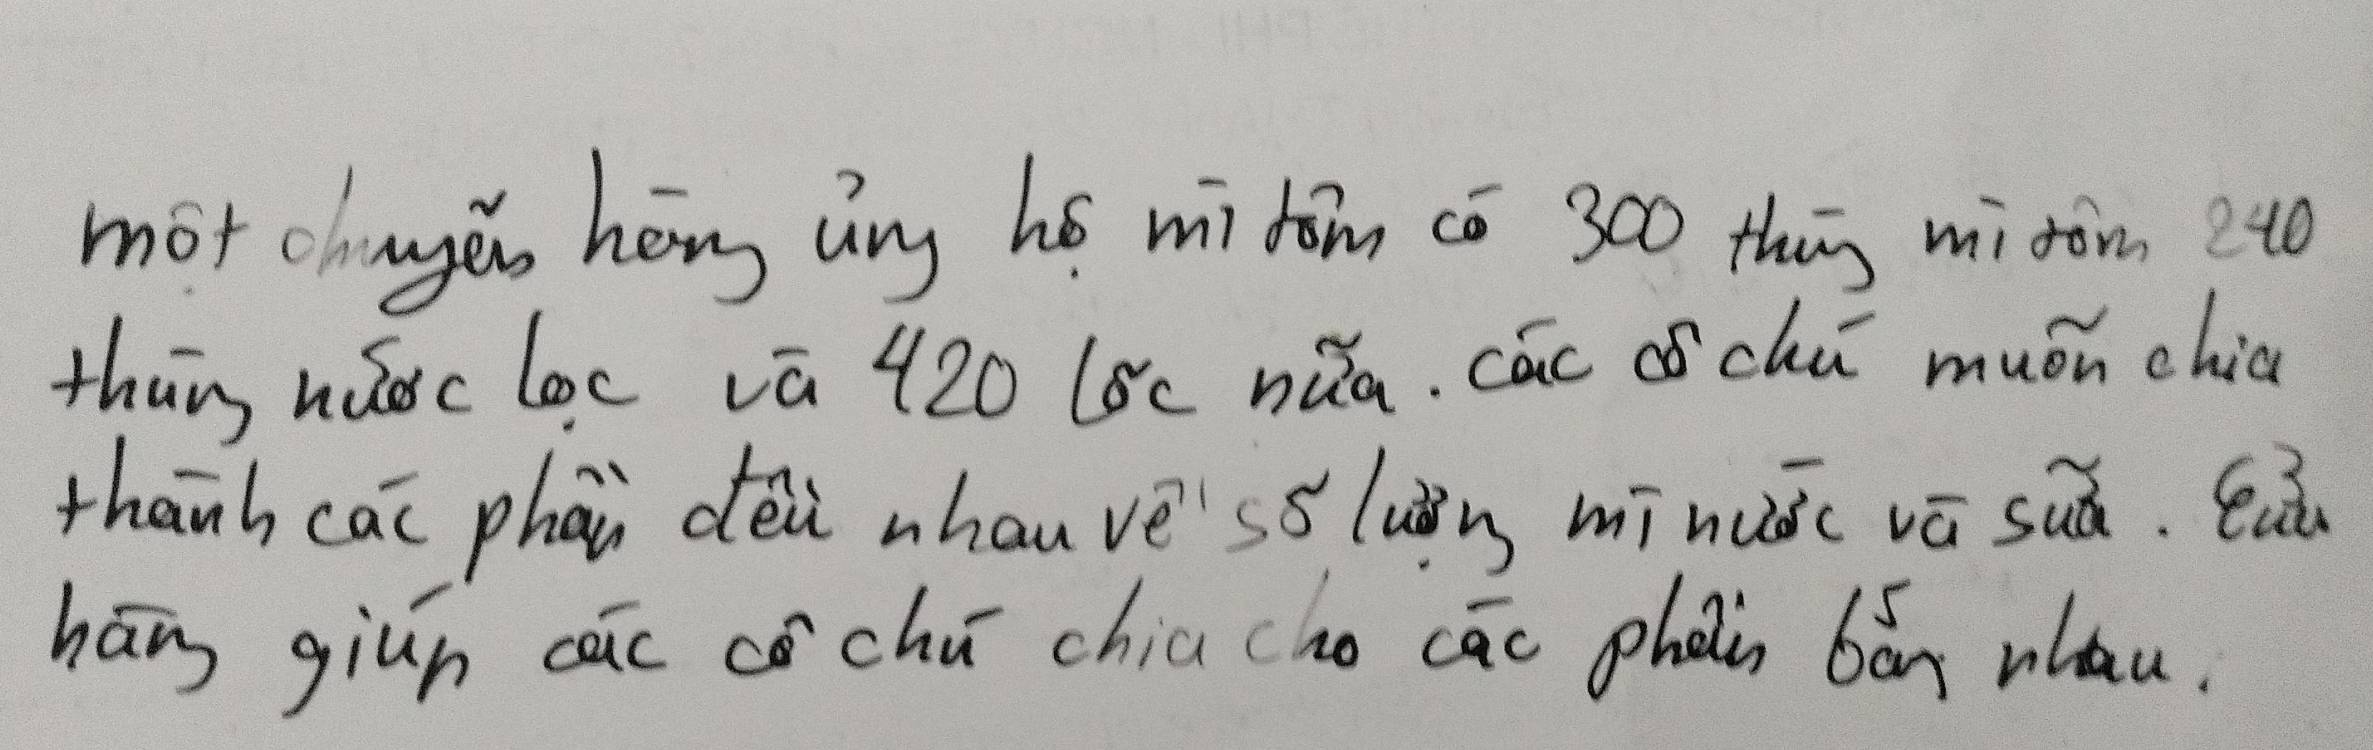 một chuyến hàng ủng hộ mì tôm có 300 thùng mì tôm 240
thùng nước lọc và 420 lốc nữa. các cô chú muốn chia
thành các phần đều nhau về số lượng mì nước và sữa. Em
hãng giúp các cô chú chia cho các phần bằng nhau.